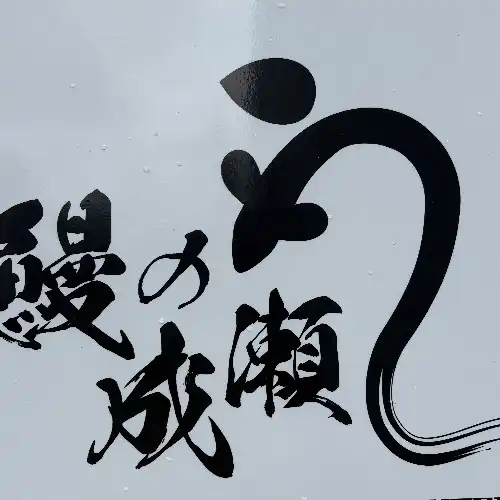 う
鰻の
成瀬